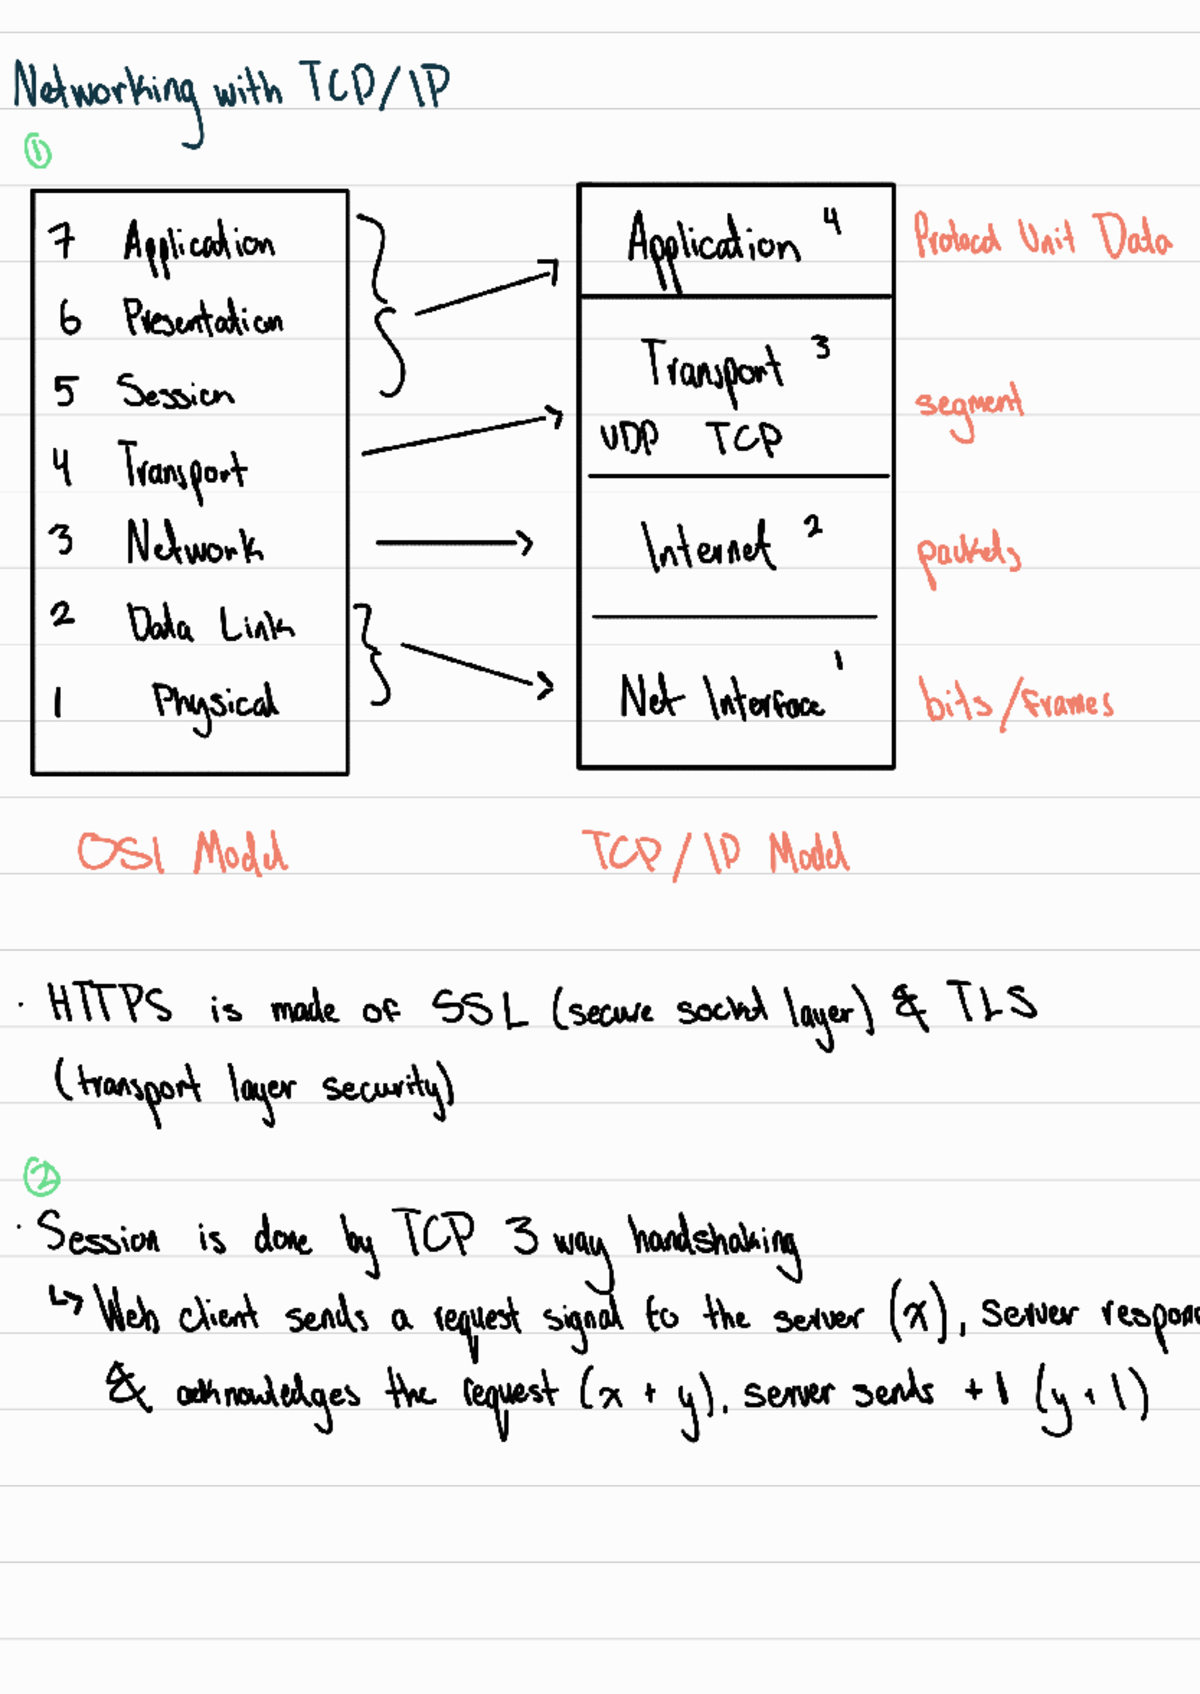 Networking with TCP/IP
①
7 Application
6 Presentation
5 Session
4 Transport
3 Network
2 Data Link
1 Physical
OSI Model
Application 4
Transport 3
UDP TCP
Internet 2
Net Interface 1
TCP/IP Model
Protocol Unit Data
segment
packets
bits/frames
· HTTPS is made of SSL (secure socket layer) & TLS
(transport layer security)
②
· Session is done by TCP 3 way handshaking
↳ Web client sends a request signal to the server (x), server respon
& acknowledges the request (x + y). server sends +1 (y + 1)